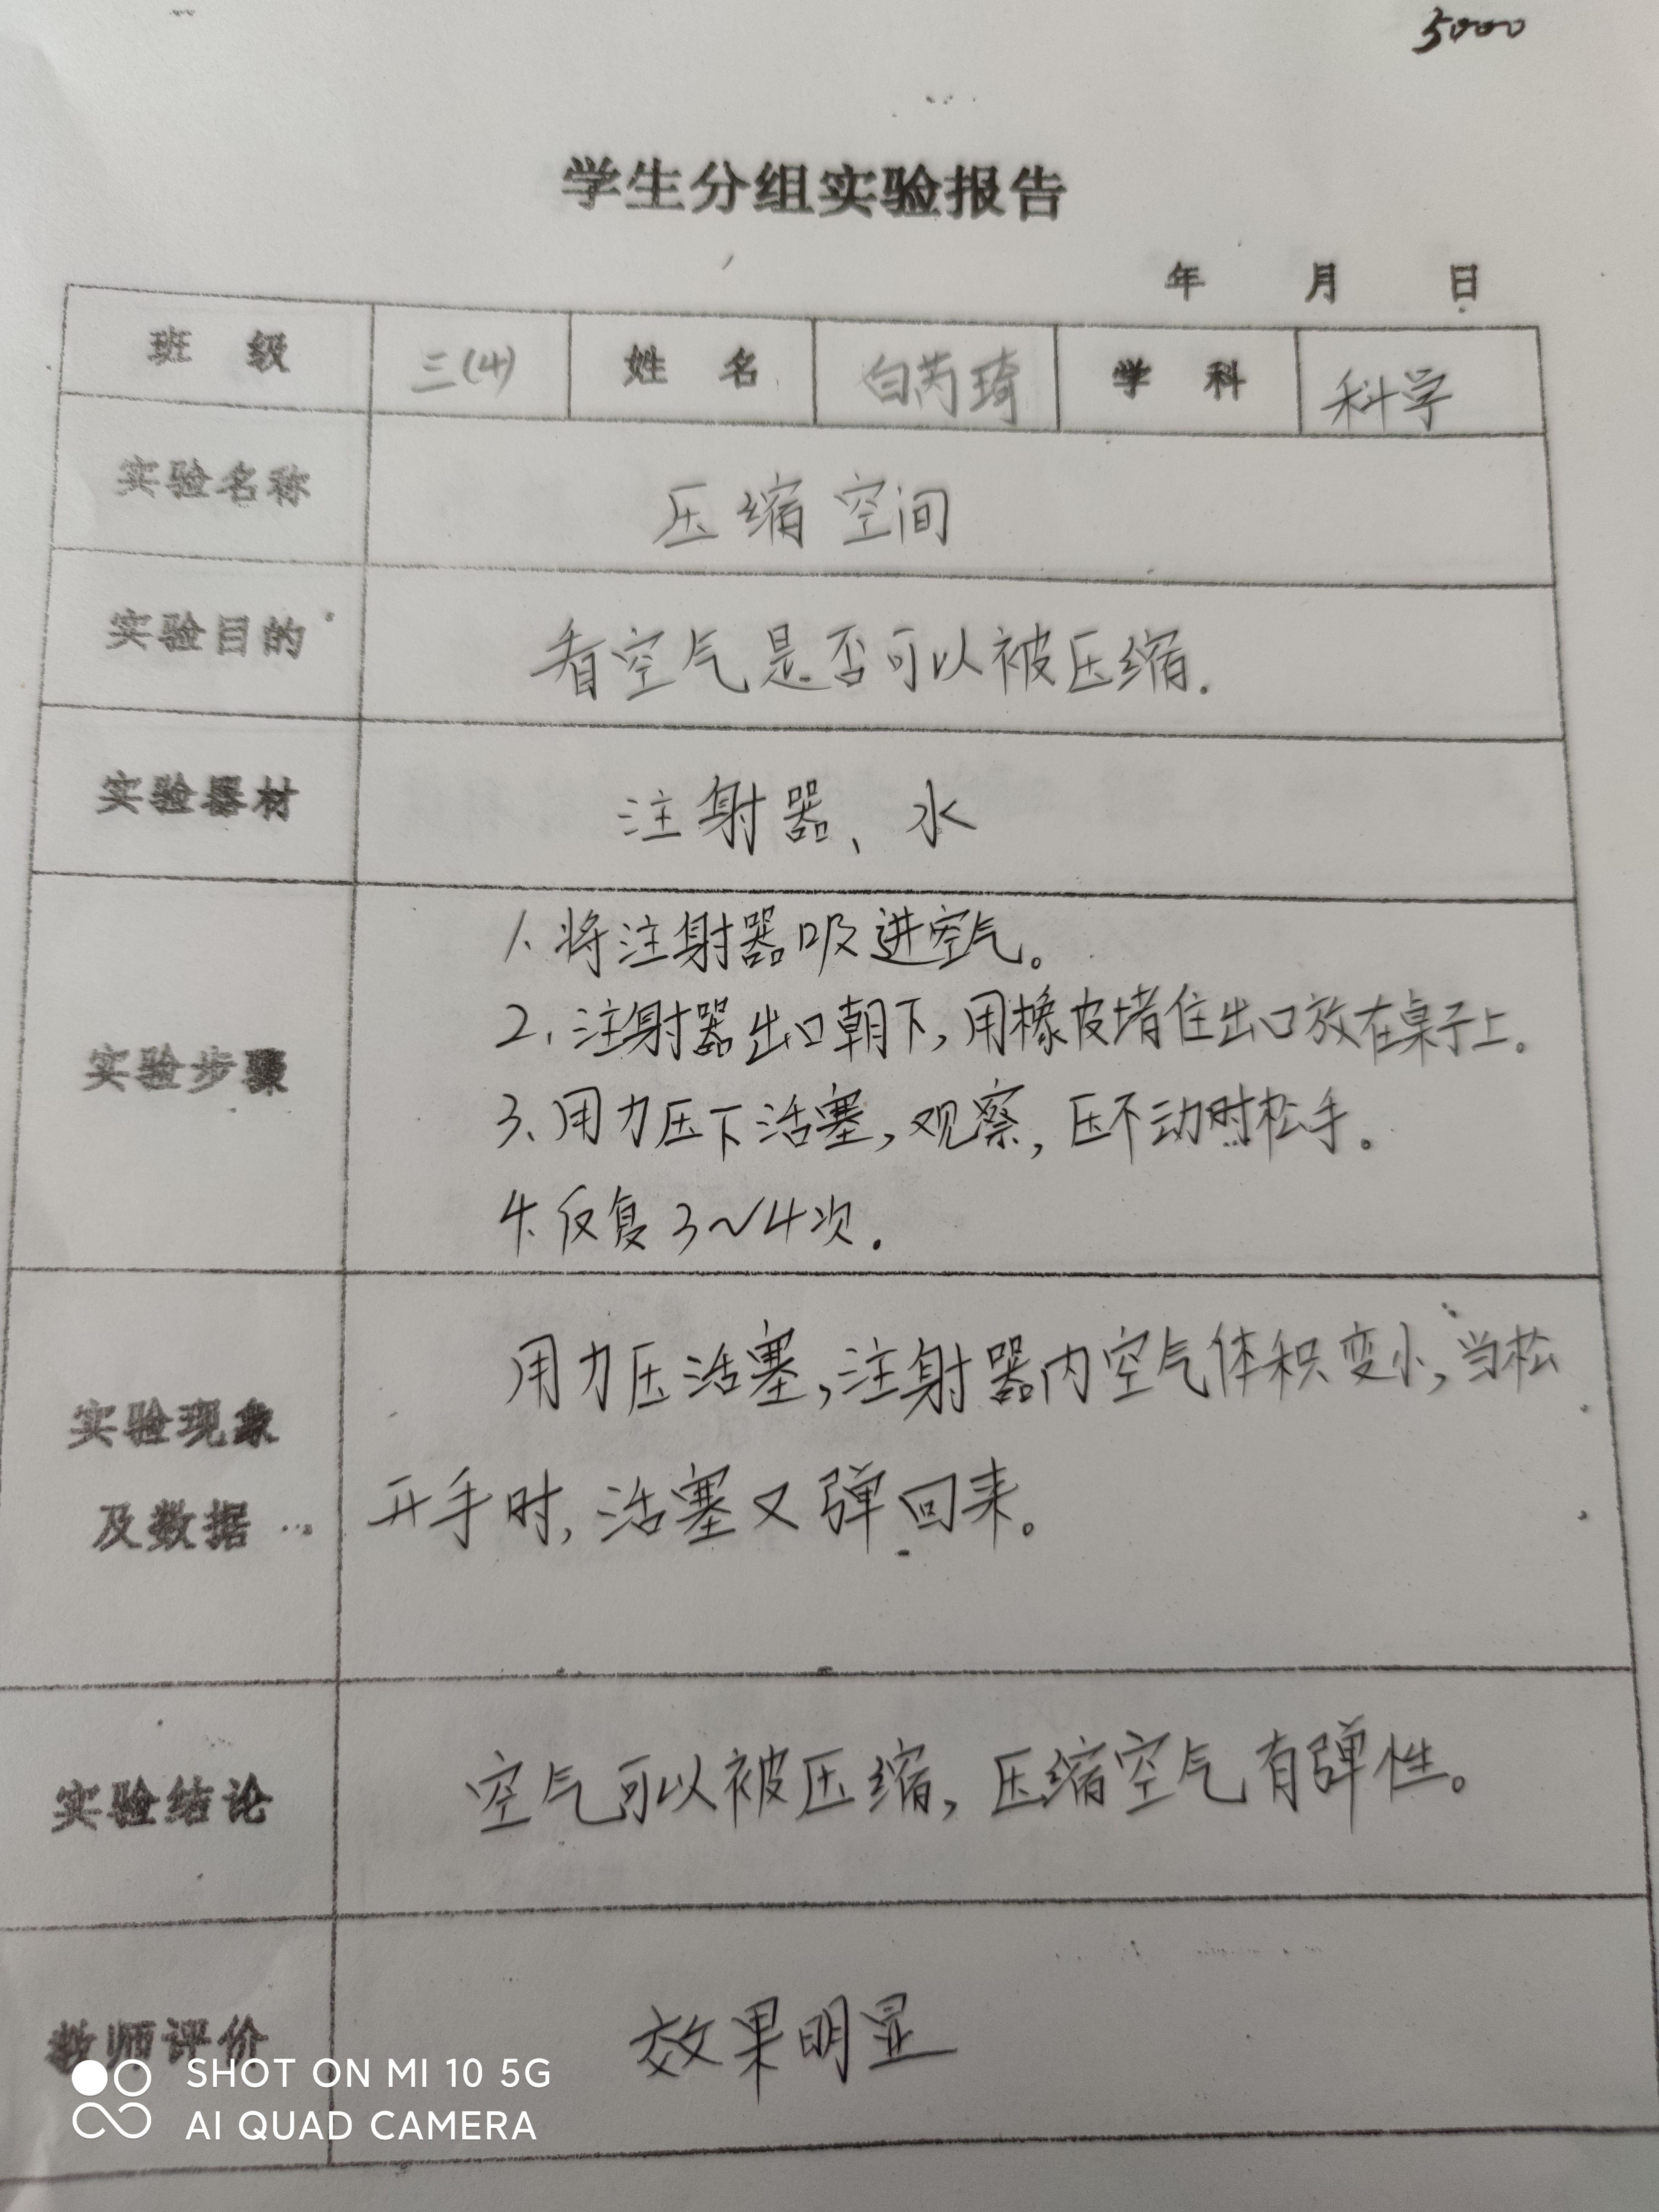 5000
学生分组实验报告
年 月 日
班 级 三(4) 姓 名 白芮琦 学 科 科学
实验名称 压缩空间
实验目的 看空气是否可以被压缩.
实验器材 注射器、水
实验步骤
1、将注射器吸进空气。
2、注射器出口朝下,用橡皮堵住出口放在桌子上。
3、用力压下活塞,观察,压不动时松手。
4、反复3~4次.
实验现象
及数据
用力压活塞,注射器内空气体积变小,当松
开手时,活塞又弹回来。
实验结论 空气可以被压缩,压缩空气有弹性。
教师评价 效果明显
SHOT ON MI 10 5G
AI QUAD CAMERA